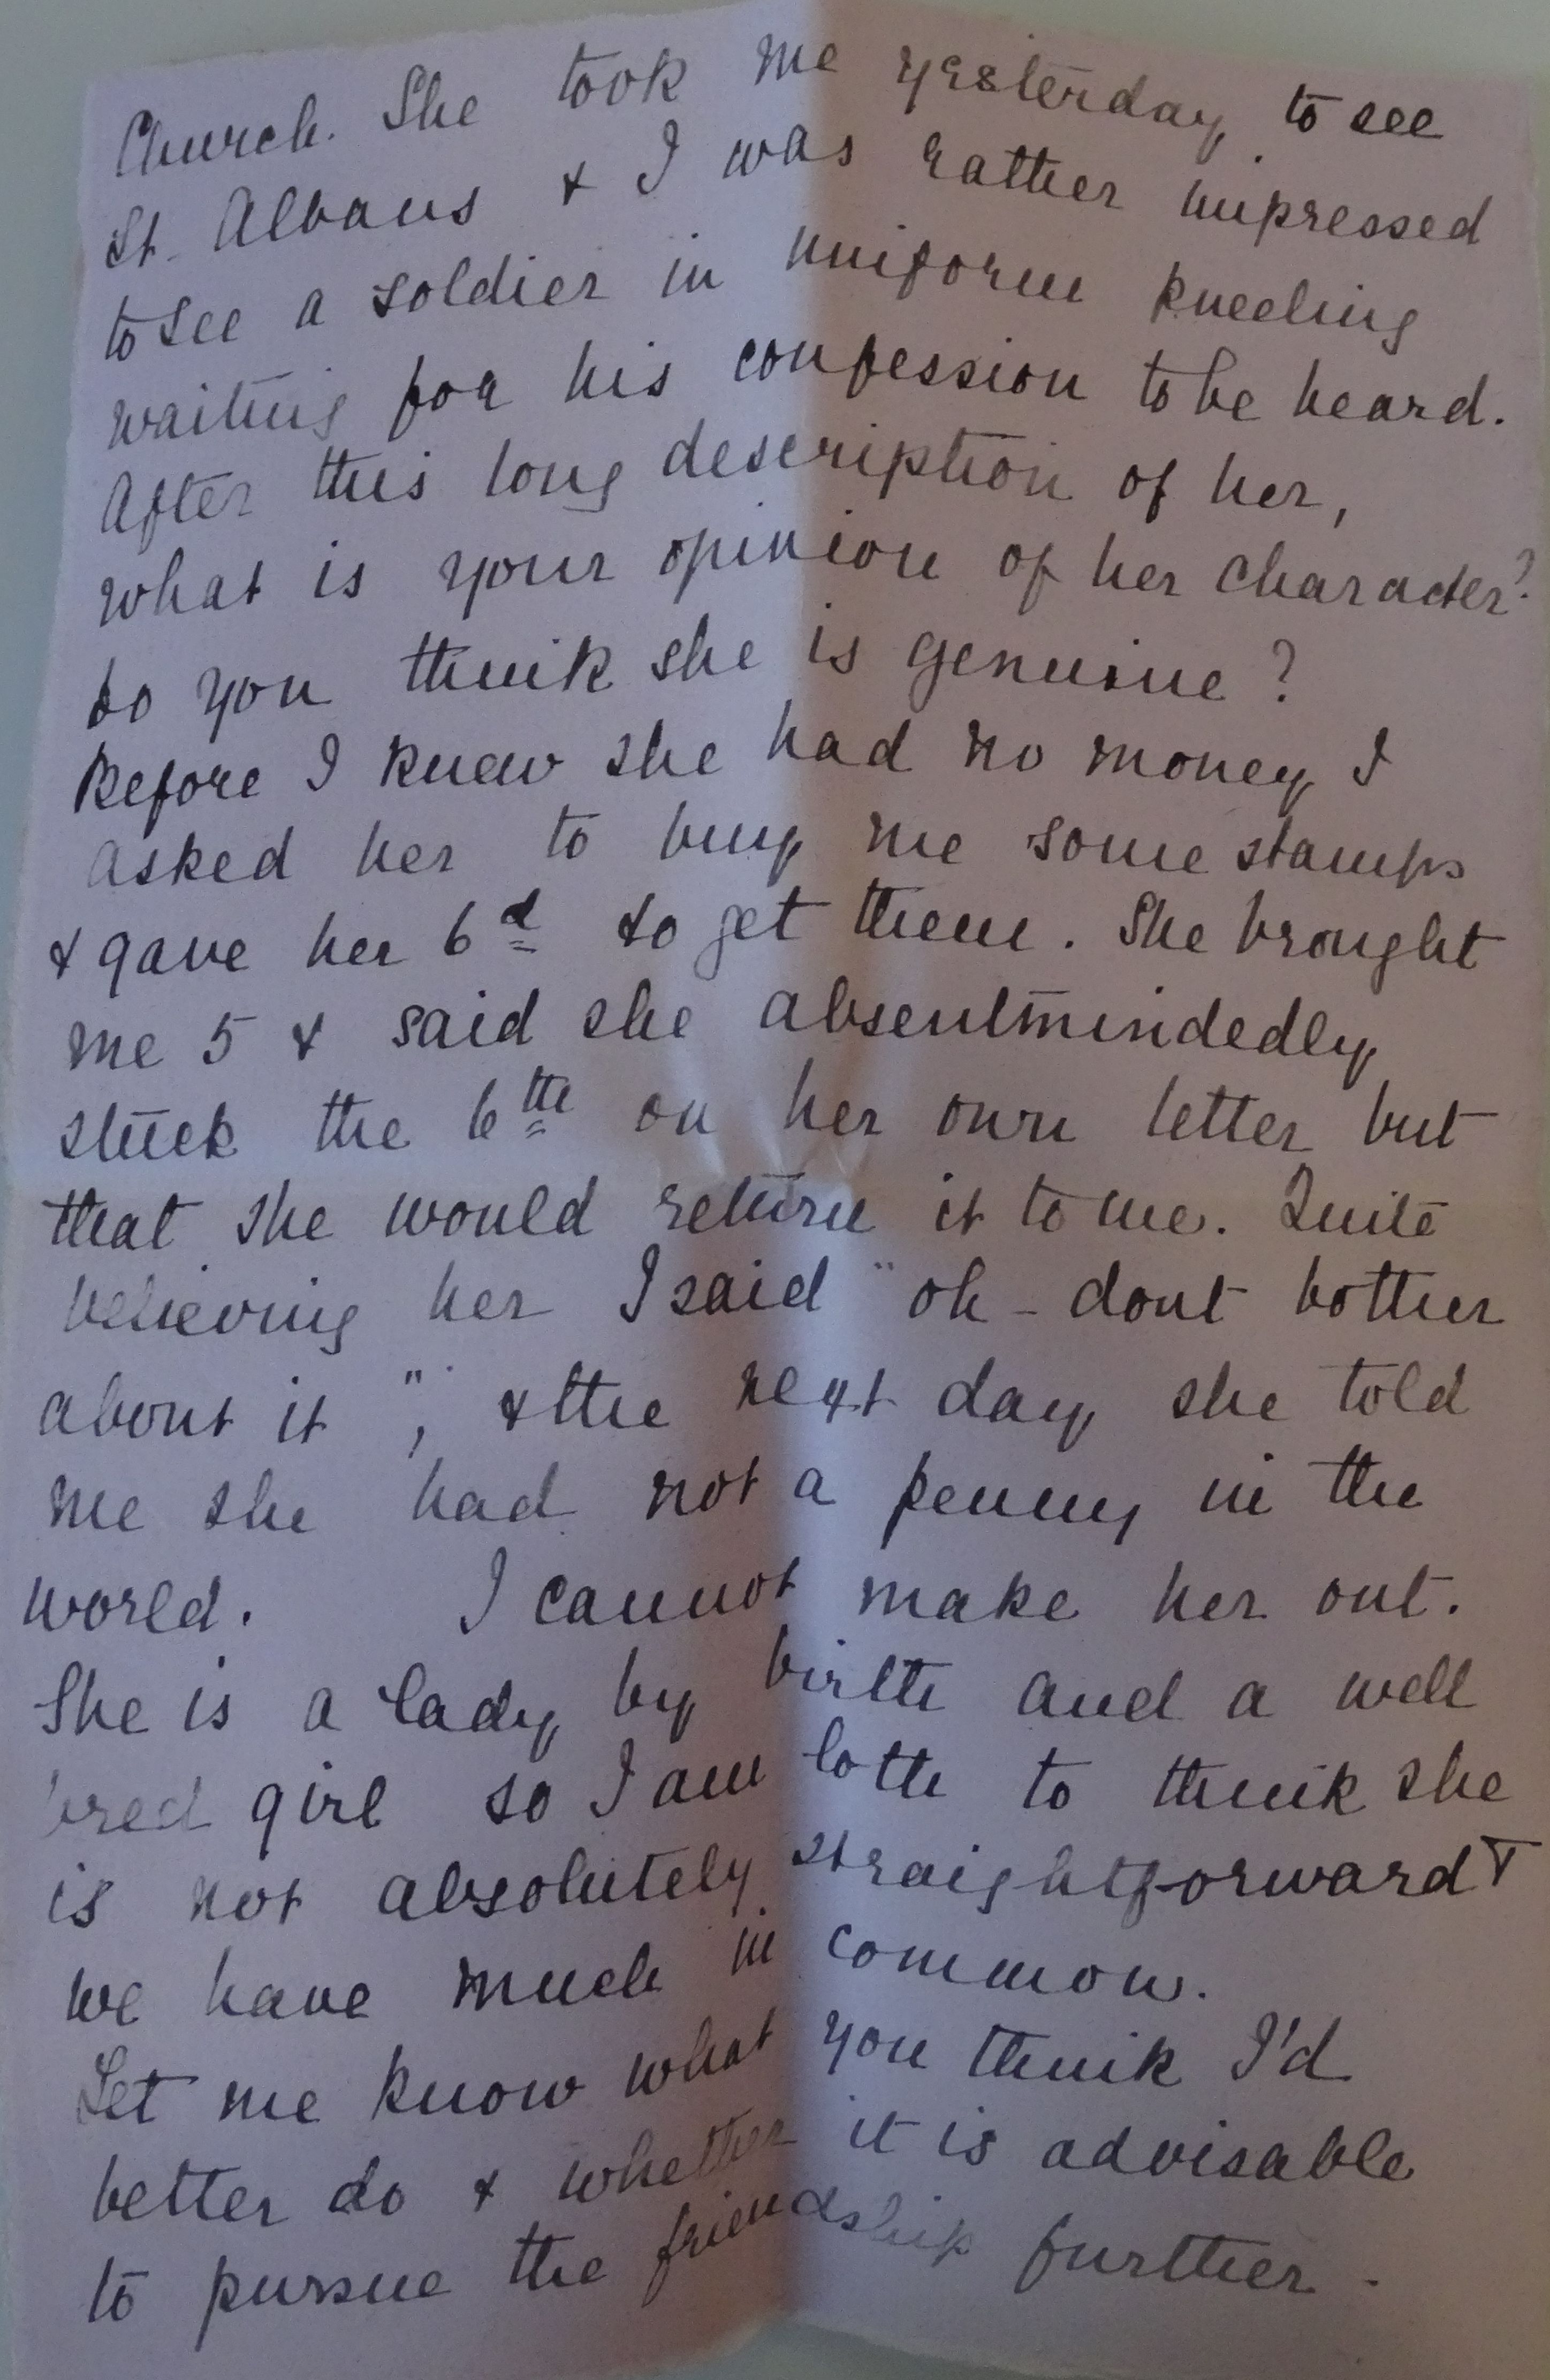 Church. She took me yesterday to see
St. Albans & I was rather impressed
to see a soldier in uniform kneeling
waiting for his confession to be heard.
After this long description of her,
what is your opinion of her character?
Do you think she is genuine?
Before I knew she had no money I
asked her to buy me some stamps
& gave her 6d to get them. She brought
me 5 & said she absentmindedly
stuck the 6th on her own letter but
that she would return it to me. Quite
believing her I said "oh - dont bother
about it", & the next day she told
me she had not a penny in the
world. I cannot make her out.
She is a lady by birth and a well
bred girl so I am loth to think she
is not absolutely straightforward &
we have much in common.
Let me know what you think I'd
better do & whether it is advisable
to pursue the friendship further.